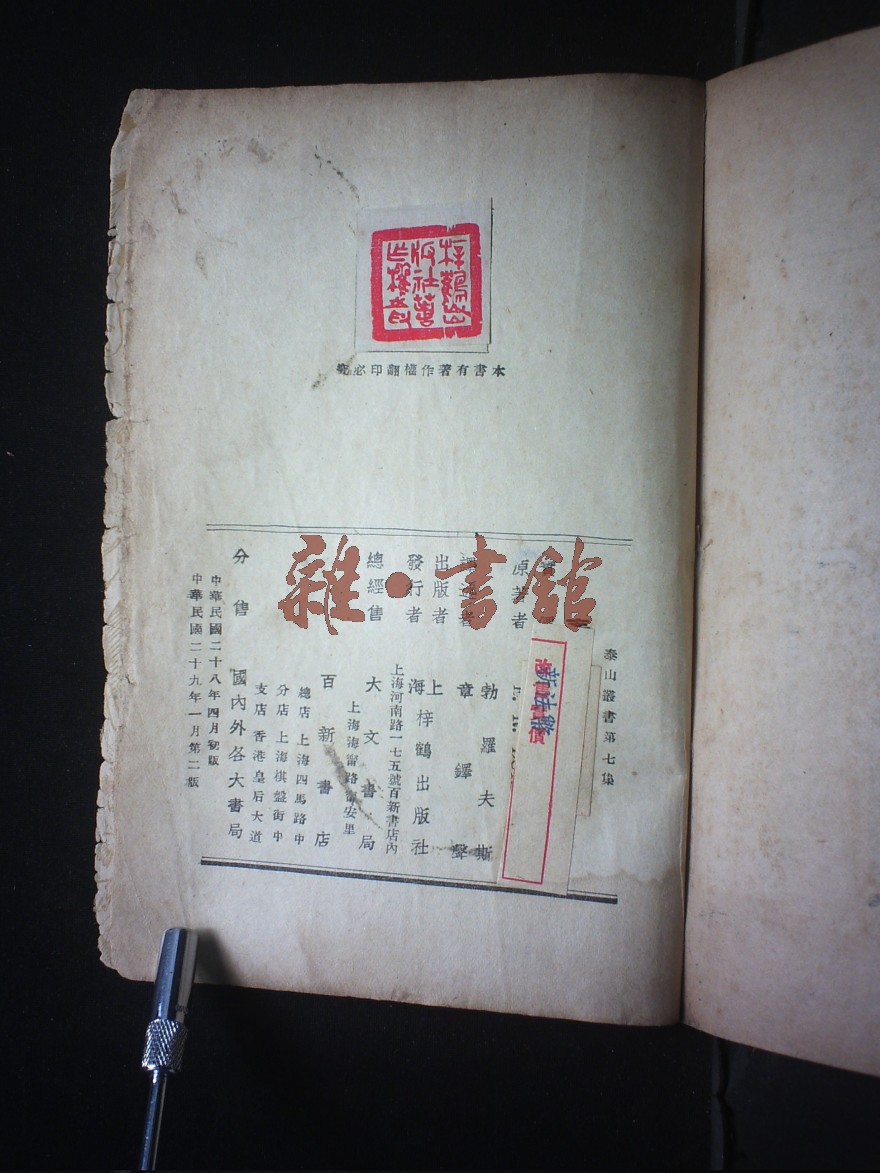 本書有著作權翻印必究
泰山叢書第七集
原著者 勃羅夫斯
章鐸聲
出版者
發行者 上海梓鶴出版社
上海河南路一七五號百新書店內
總經售 大文書局
上海海甯路甯安里
百新書店
總店 上海四馬路中
分店 上海棋盤街中
支店 香港皇后大道
分售 國內外各大書局
中華民國二十八年四月初版
中華民國二十九年一月第二版
新法幣
雜·書館